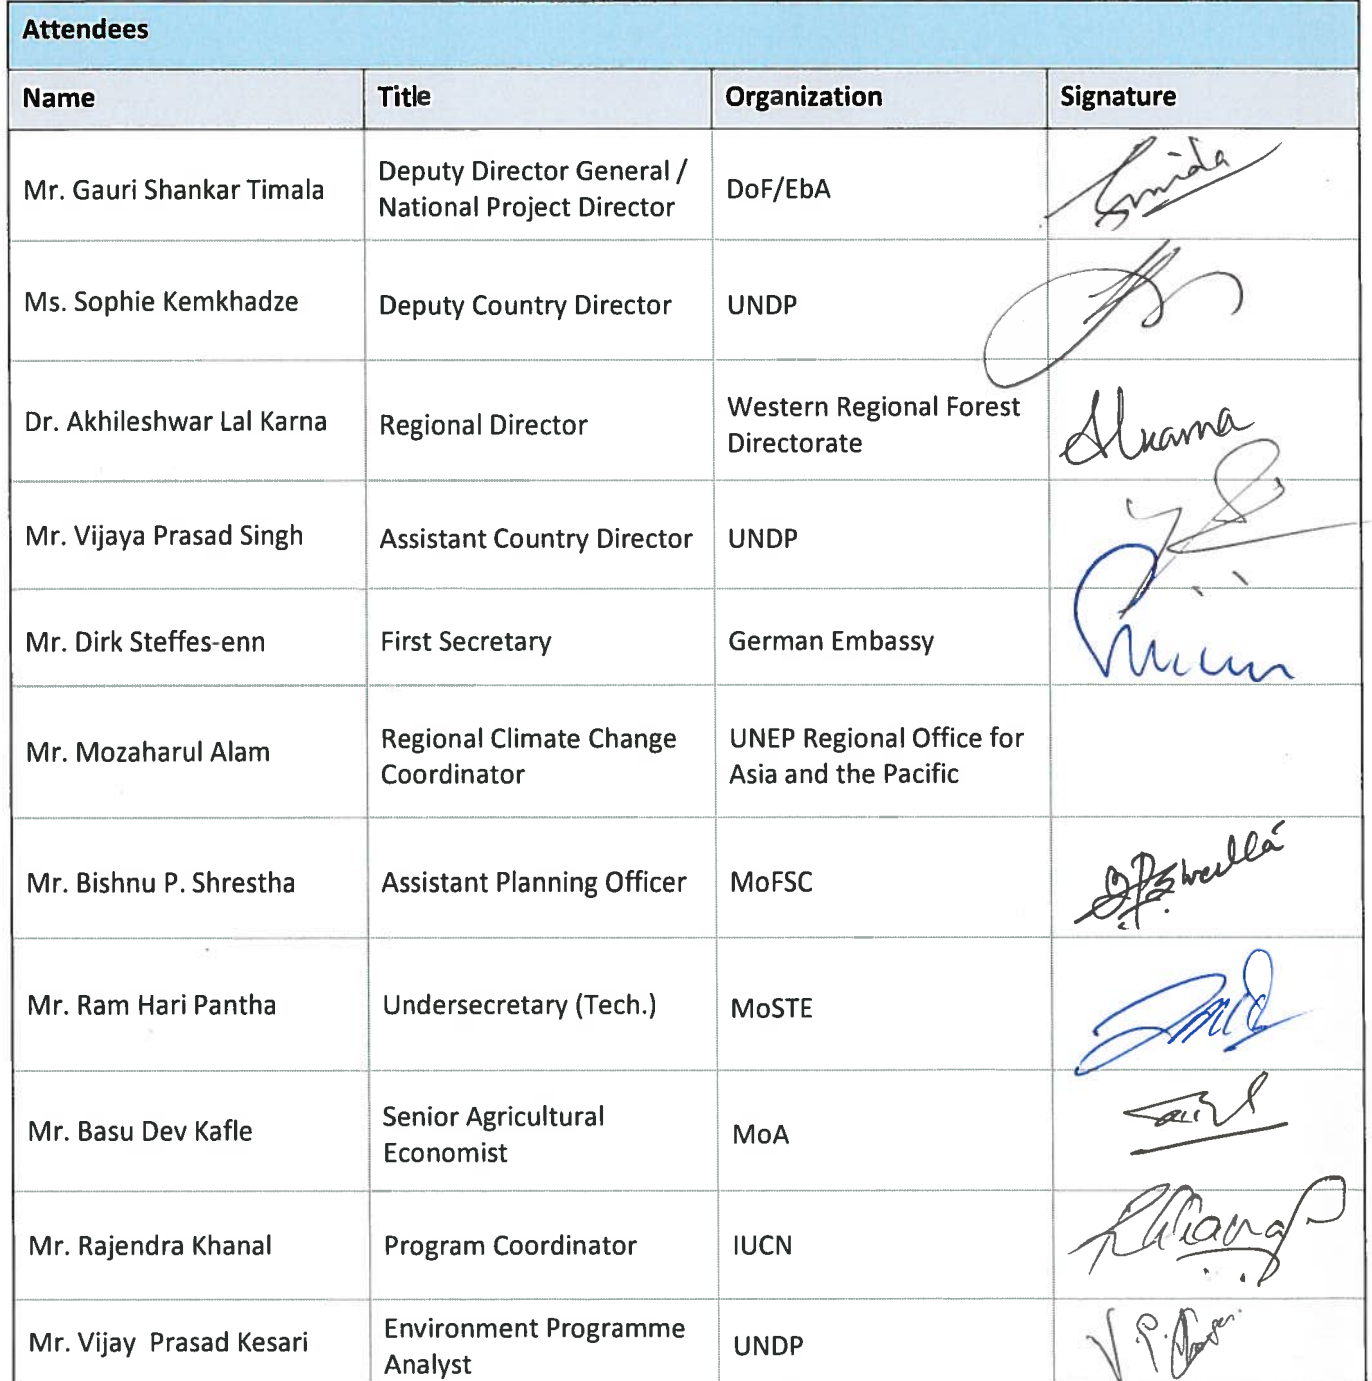 Attendees
Name Title Organization Signature
Mr. Gauri Shankar Timala
Deputy Director General /
National Project Director
DoF/EbA
Ms. Sophie Kemkhadze
Deputy Country Director
UNDP
Dr. Akhileshwar Lal Karna
Regional Director
Western Regional Forest
Directorate
Mr. Vijaya Prasad Singh
Assistant Country Director
UNDP
Mr. Dirk Steffes-enn
First Secretary
German Embassy
Mr. Mozaharul Alam
Regional Climate Change
Coordinator
UNEP Regional Office for
Asia and the Pacific
Mr. Bishnu P. Shrestha
Assistant Planning Officer
MoFSC
Mr. Ram Hari Pantha
Undersecretary (Tech.)
MoSTE
Mr. Basu Dev Kafle
Senior Agricultural
Economist
MoA
Mr. Rajendra Khanal
Program Coordinator
IUCN
Mr. Vijay Prasad Kesari
Environment Programme
Analyst
UNDP